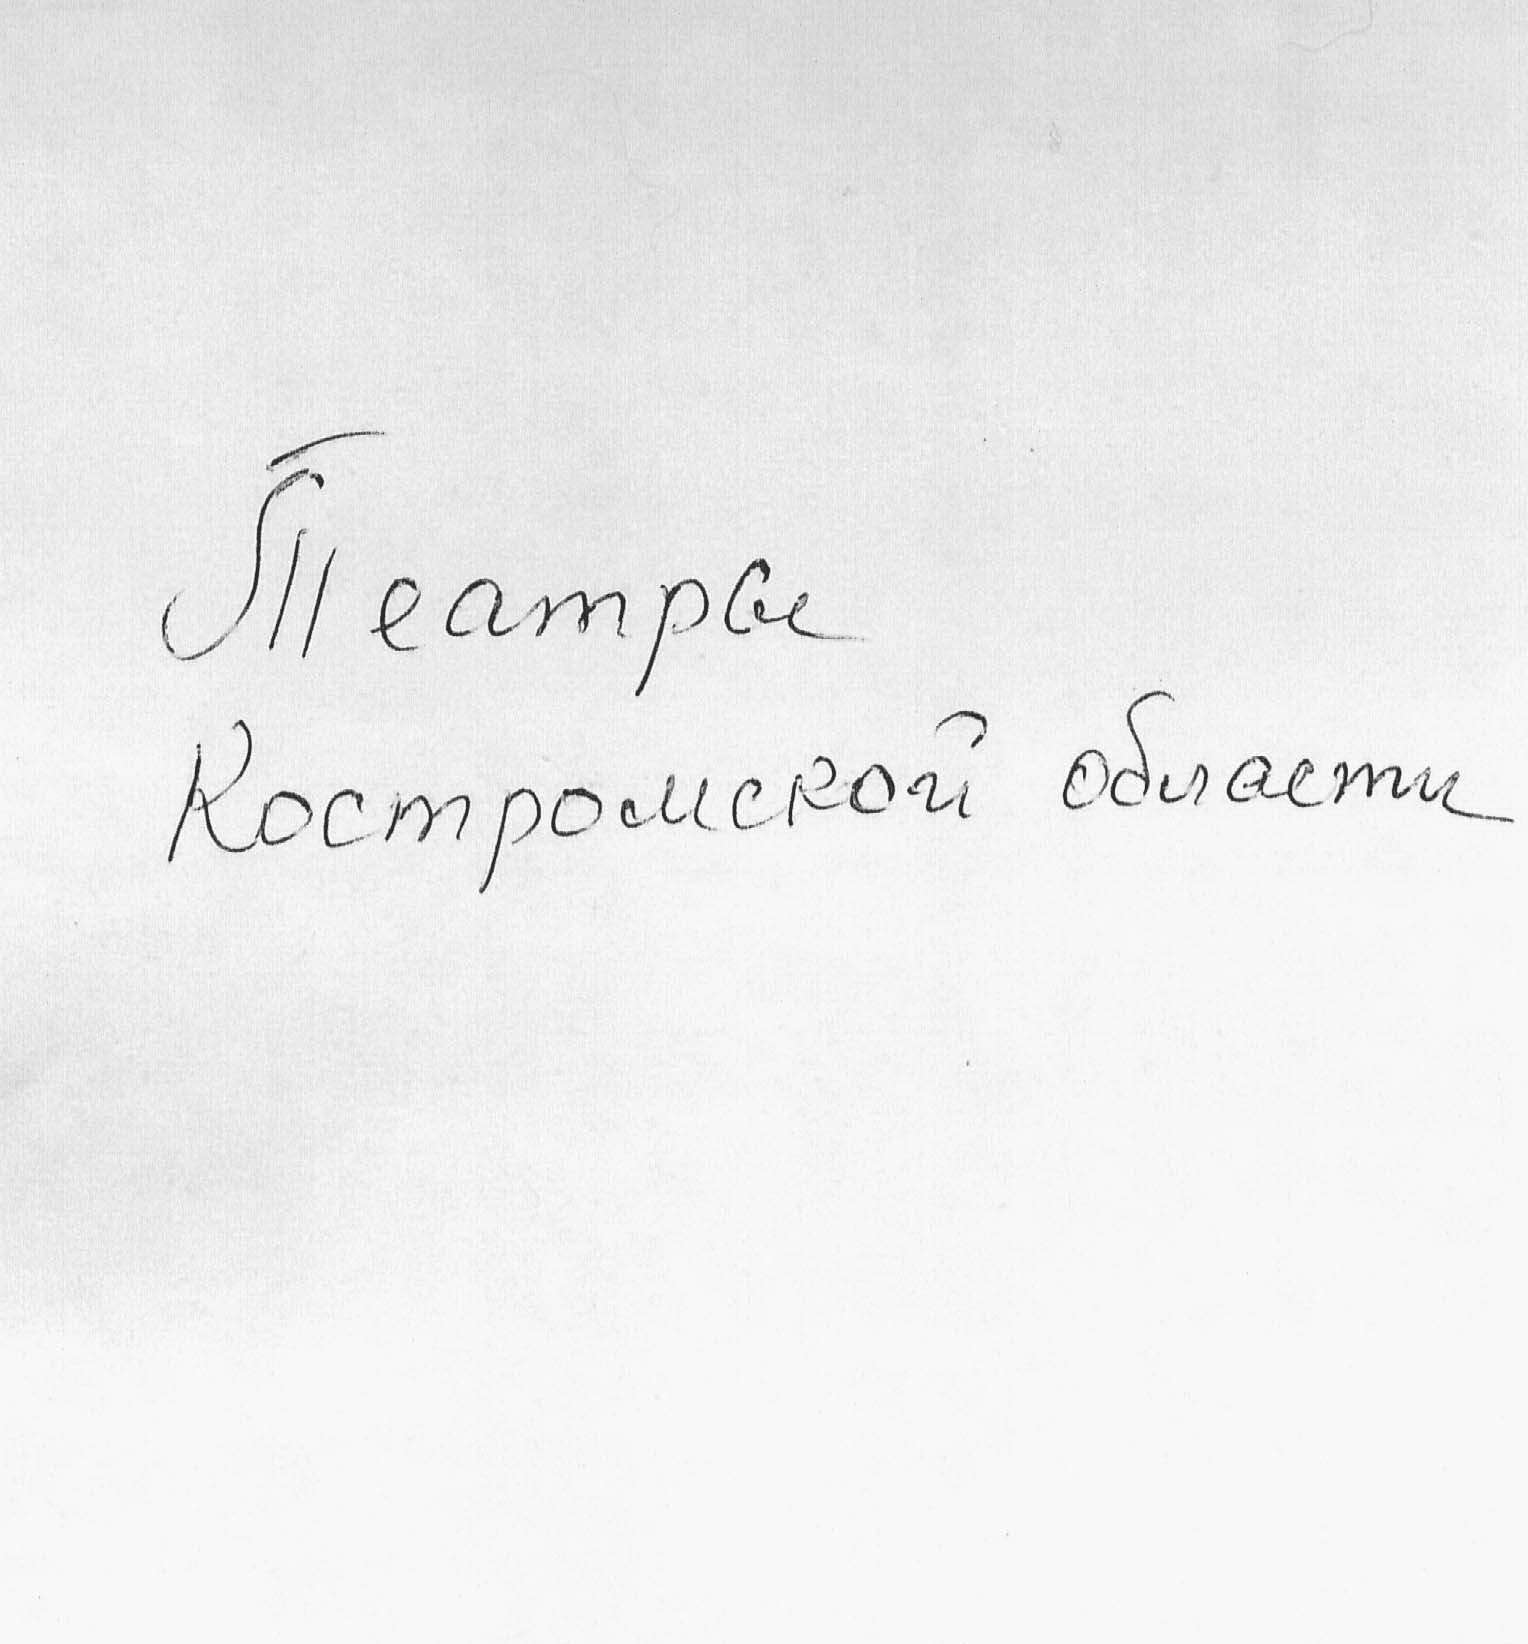 Театры
Костромской области